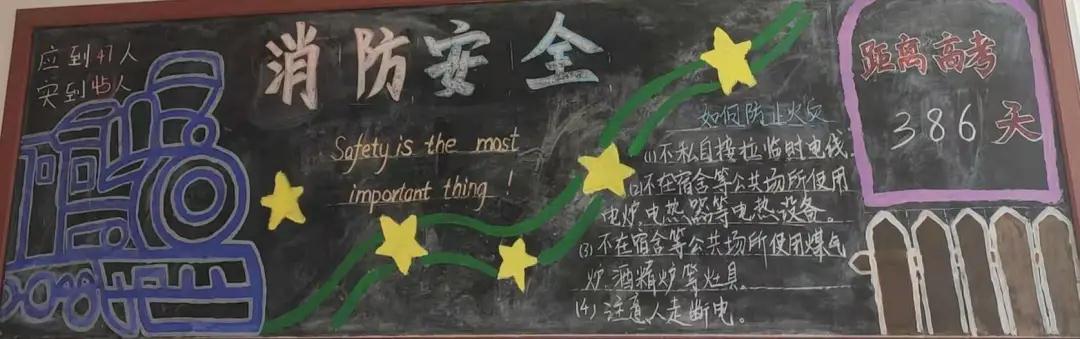 应到47人
实到45人
消防安全
Safety is the most
important thing!
如何防止火灾
(1)不私自接拉临时电线.
(2)不在宿舍等公共场所使用
电炉、电热器等电热设备。
(3)不在宿舍等公共场所使用煤气
炉、酒精炉等灶具。
(4)注意人走断电。
距离高考
386天